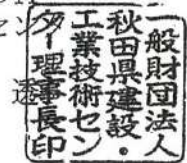 一般財団法人
秋田県建設・
工業技術セン
ター理事長印
セン
透